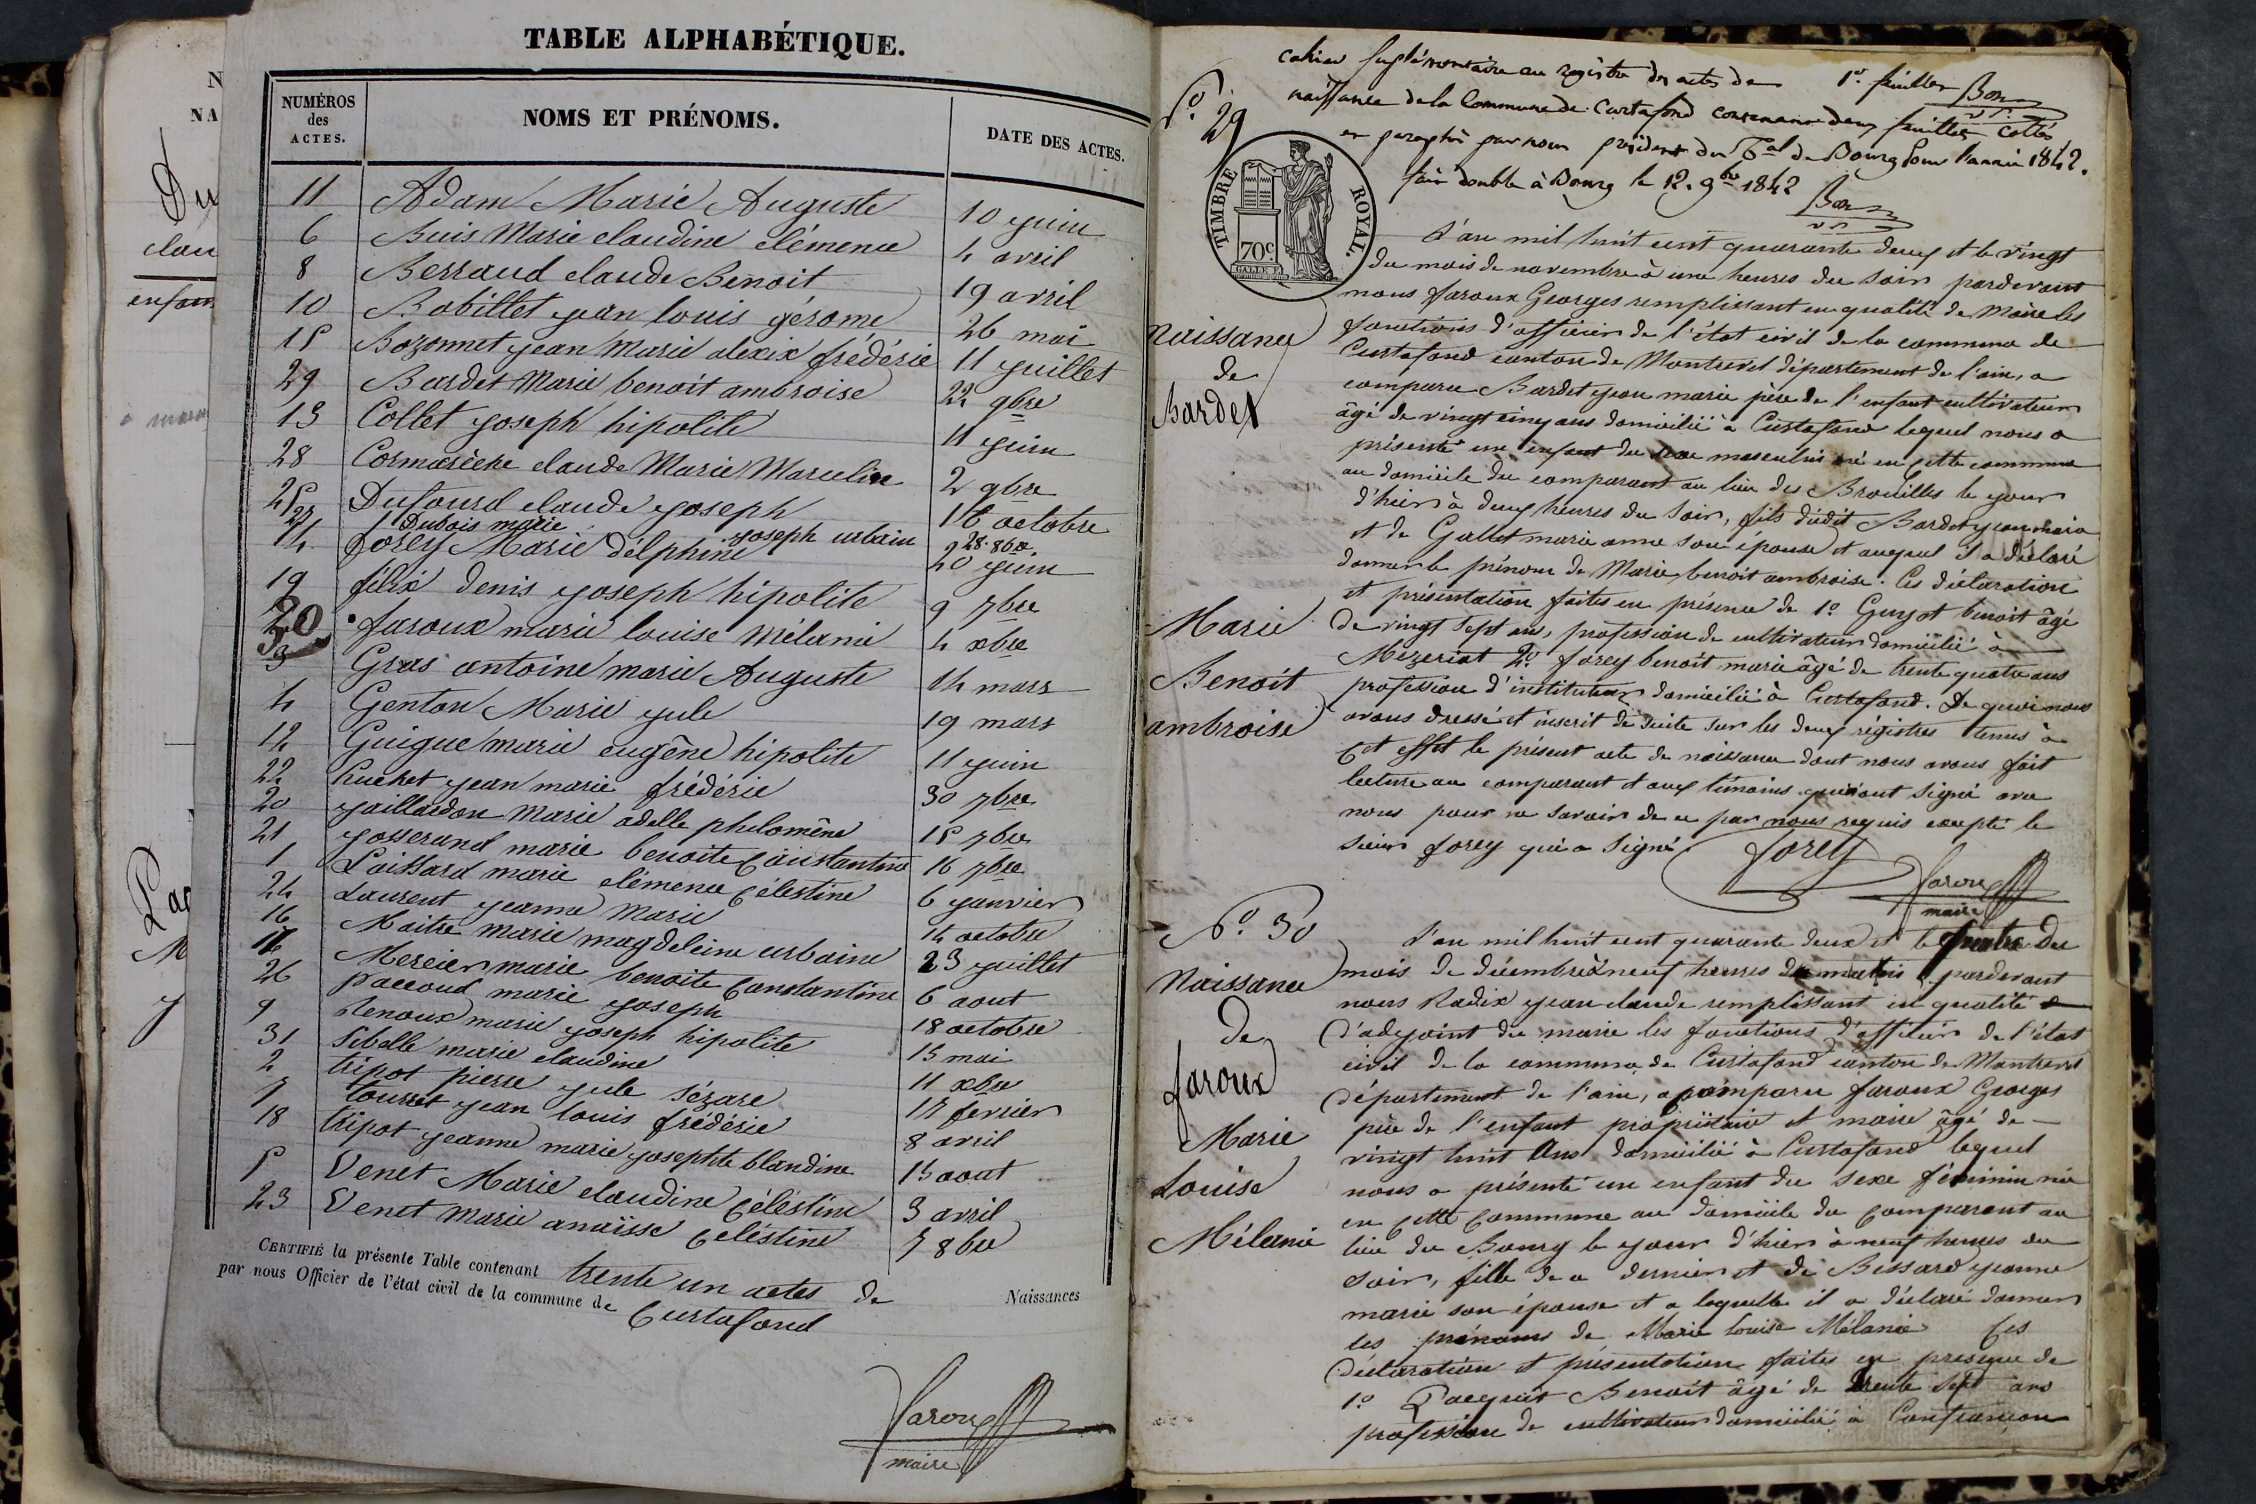 TABLE ALPHABÉTIQUE.
NUMÉROS des ACTES.
NOMS ET PRÉNOMS.
DATE DES ACTES.
11 Adam Marie Auguste 10 juin
6 Buis Marie claudine clémence 4 avril
8 Berraud claude Benoit 19 avril
10 Bobillet jean louis gérome 26 mai
15 Bozonnet jean Marie alexix frédéric 11 juillet
29 Bardet Marie benoit ambroise 22 9bre
13 Collet joseph hipolite 11 juin
28 Cormarèche claude Marie Marcelin 2 9bre
25 Dufourd claude joseph 16 octobre
27 Dubois marie joseph urbain 28 8bre.
14 forey Marie délphine 20 juin
19 félix denis joseph hipolite 9 7bre
30 faroux marie louise mélanie 4 xbre
3 Gras antoine marie Auguste 14 mars
4 Genton Marie jule 19 mars
12 Guigue marie eugène hipolite 11 juin
22 huchet jean marie frédéric 30 7bre
20 jaillardon Marie adelle philomène 15 7bre
21 josserand marie benoite Constantine 16 7bre
1 Laissard marie clémence Célestine 6 janvier
24 Laurent jeanne Marie 14 octobre
16 Maitre marie magdeleine urbaine 23 juillet
17 Mercier marie benoite Constantine 6 aout
26 paccoud marie joseph 18 octobre
9 Renoux marie joseph hipolite 13 mai
31 Sibelle marie claudine 11 xbre
2 tripot pierre jule Sézare 17 fevrier
7 tourret jean louis frédéric 8 avril
18 tripot jeanne marie josephte blandine 13 aout
5 Venet Marie claudine Céléstine 3 avril
23 Venet marie anaïsse Celéstine 7 8bre
CERTIFIÉ la présente Table contenant trente un actes de Naissances
par nous Officier de l'état civil de la commune de Curtafond
faroux
maire
cahier suplémentaire au registre des actes de 1er. feuillet
naissance de la Commune de Curtafond contenant deux feuillets cottés
et paraphés par nous président du Tal de Bourg pour l'année 1842.
fait double à Bourg le 12. 9bre 1842
No. 29
TIMBRE ROYAL.
70c.
naissance
de
Bardet
Marie
Benoit
ambroise
L'an mil huit cent quarante deux et le vingt
du mois de novembre à une heures du soir pardevant
nous faroux Georges remplissant en qualité de Maire les
fonctions d'officier de l'état civil de la commune de
Curtafond canton de Montrevel département de l'ain, a
comparu Bardet jean marie père de l'enfant cultivateur
âgé de vingt cinq ans domicilié à Curtafond lequel nous a
présenté un enfant du sexe masculin né en cette commune
au domicile du comparant au lieu des Brouilles le jour
d'hier à deux heures du soir, fils dudit Bardet jean marie
et de Gallet marie anne son épouse et auquel il a déclaré
donner le prénom de Marie benoit ambroise. Ces déclaration
et présentation faites en présence de 1o Guyot benoit âgé
de vingt sept ans, profession de cultivateur domicilié à
Mezeriat 2o forey benoit marie âgé de trente quatre ans
profession d'instituteur domicilié à Curtafond. De quoi nous
avons dressé et inscrit de suite sur les deux régistres tenus à
Cet effet le présent acte de naissance dont nous avons fait
lecture au comparant et aux témoins qui n'ont signé avec
nous pour ne savoir de ce par nous requis excepté le
sieur forey qui a signé
forey
faroux
maire
No. 30
Naissance
De
faroux
Marie
Louise
Mélanie
L'an mil huit cent quarante deux et le quatre du
mois de décembre à neuf heures du matin pardevant
nous Radix jean claude remplissant en qualité
d'adjoint du maire les fonctions d'officier de l'état
civil de la commune de Curtafond canton de Montrevel
département de l'ain, a comparu faroux Georges
père de l'enfant propriétaire et maire âgé de
vingt huit ans domicilié à Curtafond lequel
nous a présenté un enfant du sexe féminin née
en cette commune au domicile du comparant au
lieu du Bourg le jour d'hier à neuf heures du
soir, fille de ce dernier et de Bessard jeanne
marie son épouse et a laquelle il a déclaré donner
les prénoms de Marie louise Mélanie Ces
déclaration et présentation faites en présence de
1o Pacquet Benoit âgé de trente sept ans
profession de cultivateur domicilié à Confrançon